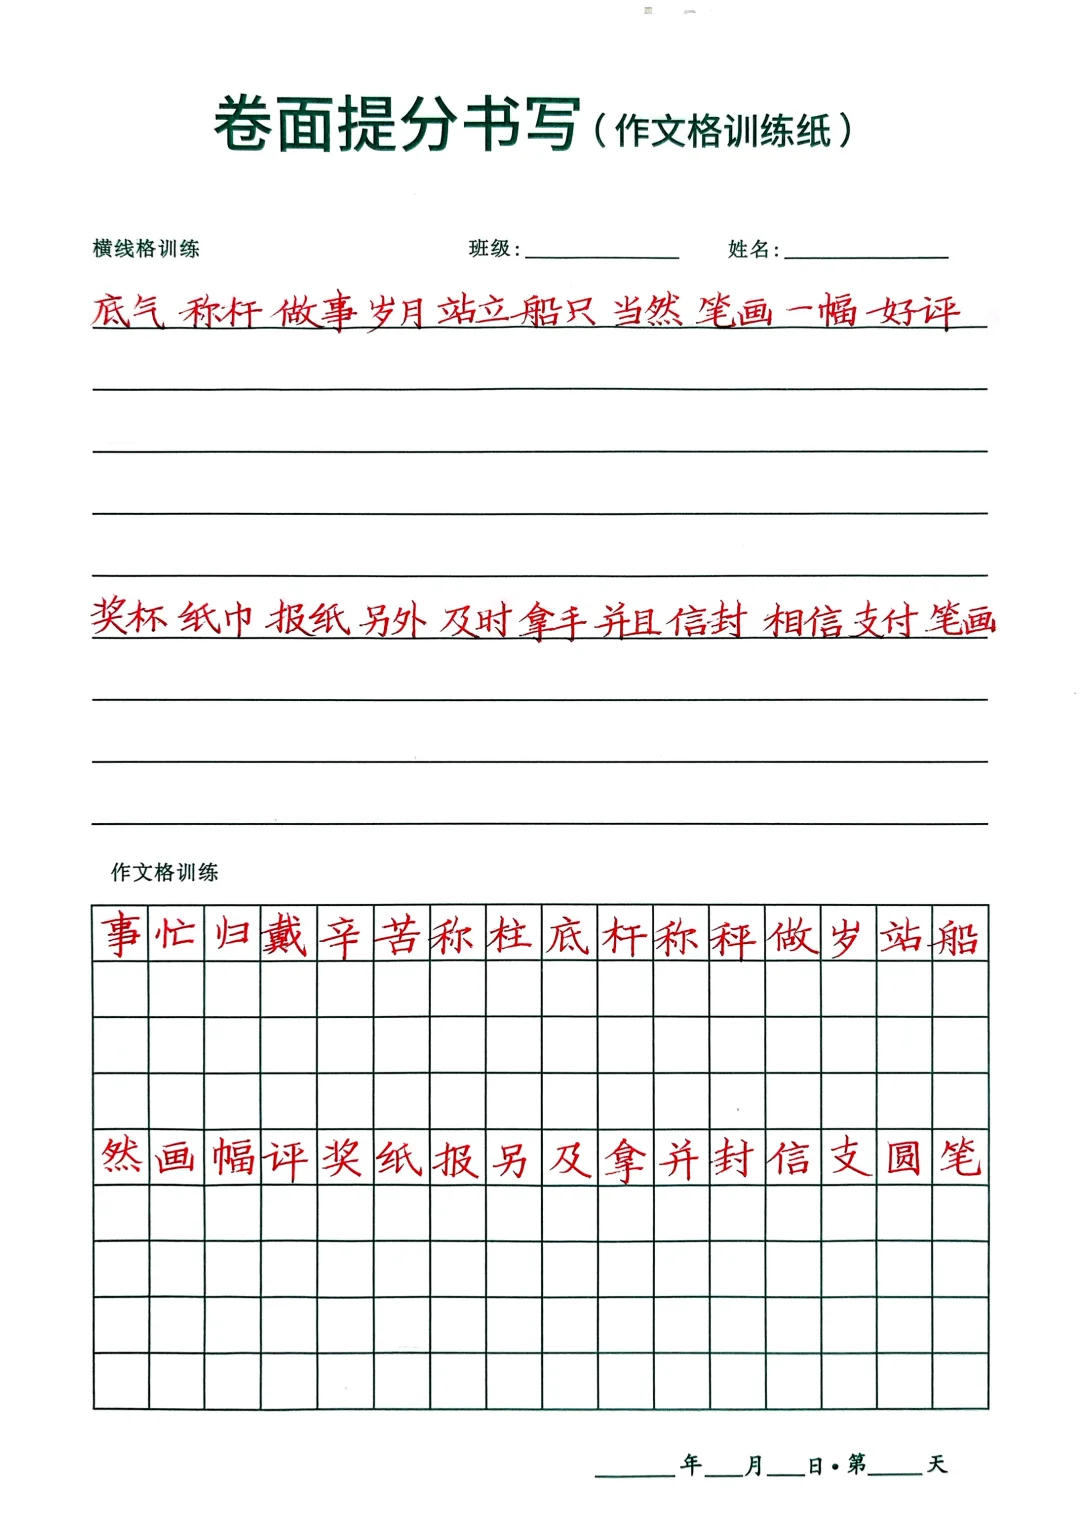 卷面提分书写（作文格训练纸）
横线格训练 班级：________ 姓名：________
底气 称杆 做事 岁月 站立 船只 当然 笔画 一幅 好评
奖杯 纸巾 报纸 另外 及时 拿手 并且 信封 相信 支付 笔画
作文格训练
事忙归戴辛苦称柱底杆称秤做岁站船
然画幅评奖纸报另及拿并封信支圆笔
____年__月__日·第___天